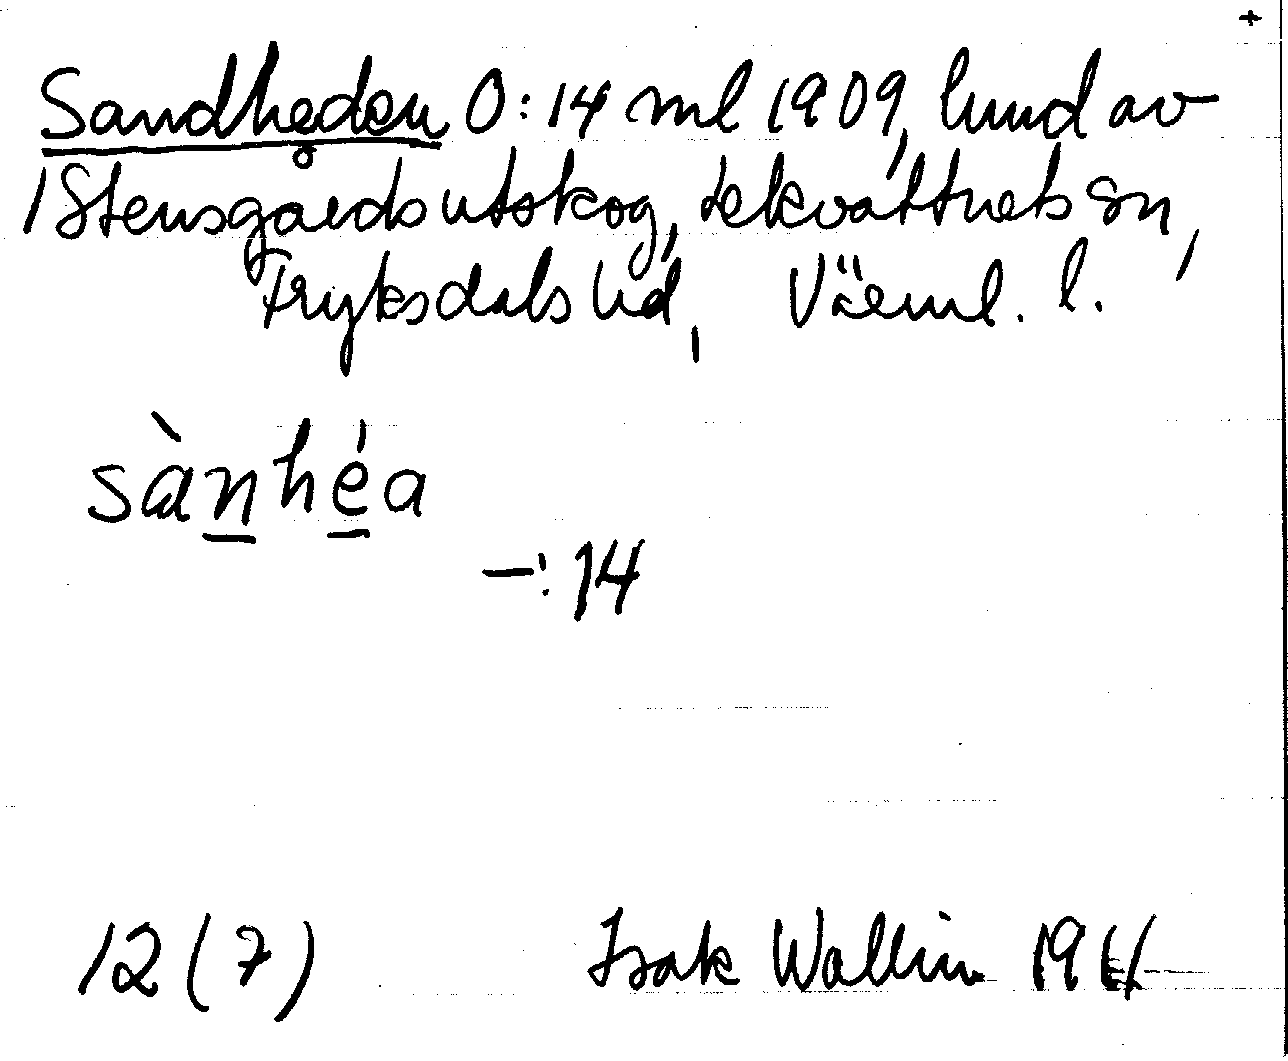 Sandheden 0:14 ml 1909, lund av
1 Stensgårds utskog, Lekvattnets sn,
Fryksdals hd, Värml. l.
sànhéa
—:14
12 (7) Isak Wallin